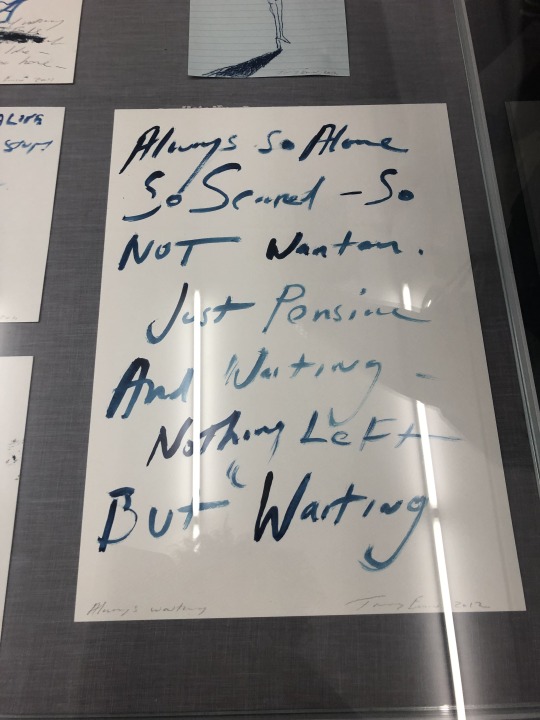 Always So Alone
So Scared – So
NOT Wanton.
Just Pensive
And Waiting –
Nothing Left
But "Waiting
Always waiting
Tracey Emin 2012
ALONE